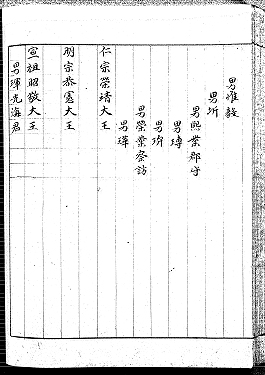 男惟毅
男圻
男熙業郡守
男塼
男圿
男榮業察訪
男璍
仁宗榮靖大王
明宗恭憲大王
宣祖昭敬大王
男琿光海君